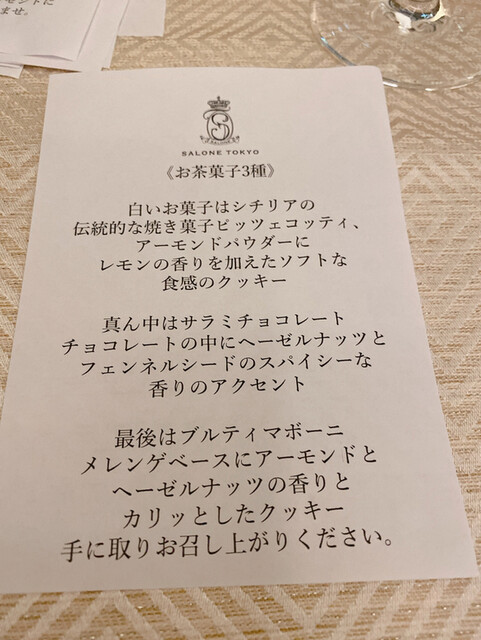 セントに
ませ。
SALONE
SALONE TOKYO
《お茶菓子3種》
白いお菓子はシチリアの
伝統的な焼き菓子ピッツェコッティ、
アーモンドパウダーに
レモンの香りを加えたソフトな
食感のクッキー
真ん中はサラミチョコレート
チョコレートの中にヘーゼルナッツと
フェンネルシードのスパイシーな
香りのアクセント
最後はブルティマボーニ
メレンゲベースにアーモンドと
ヘーゼルナッツの香りと
カリッとしたクッキー
手に取りお召し上がりください。